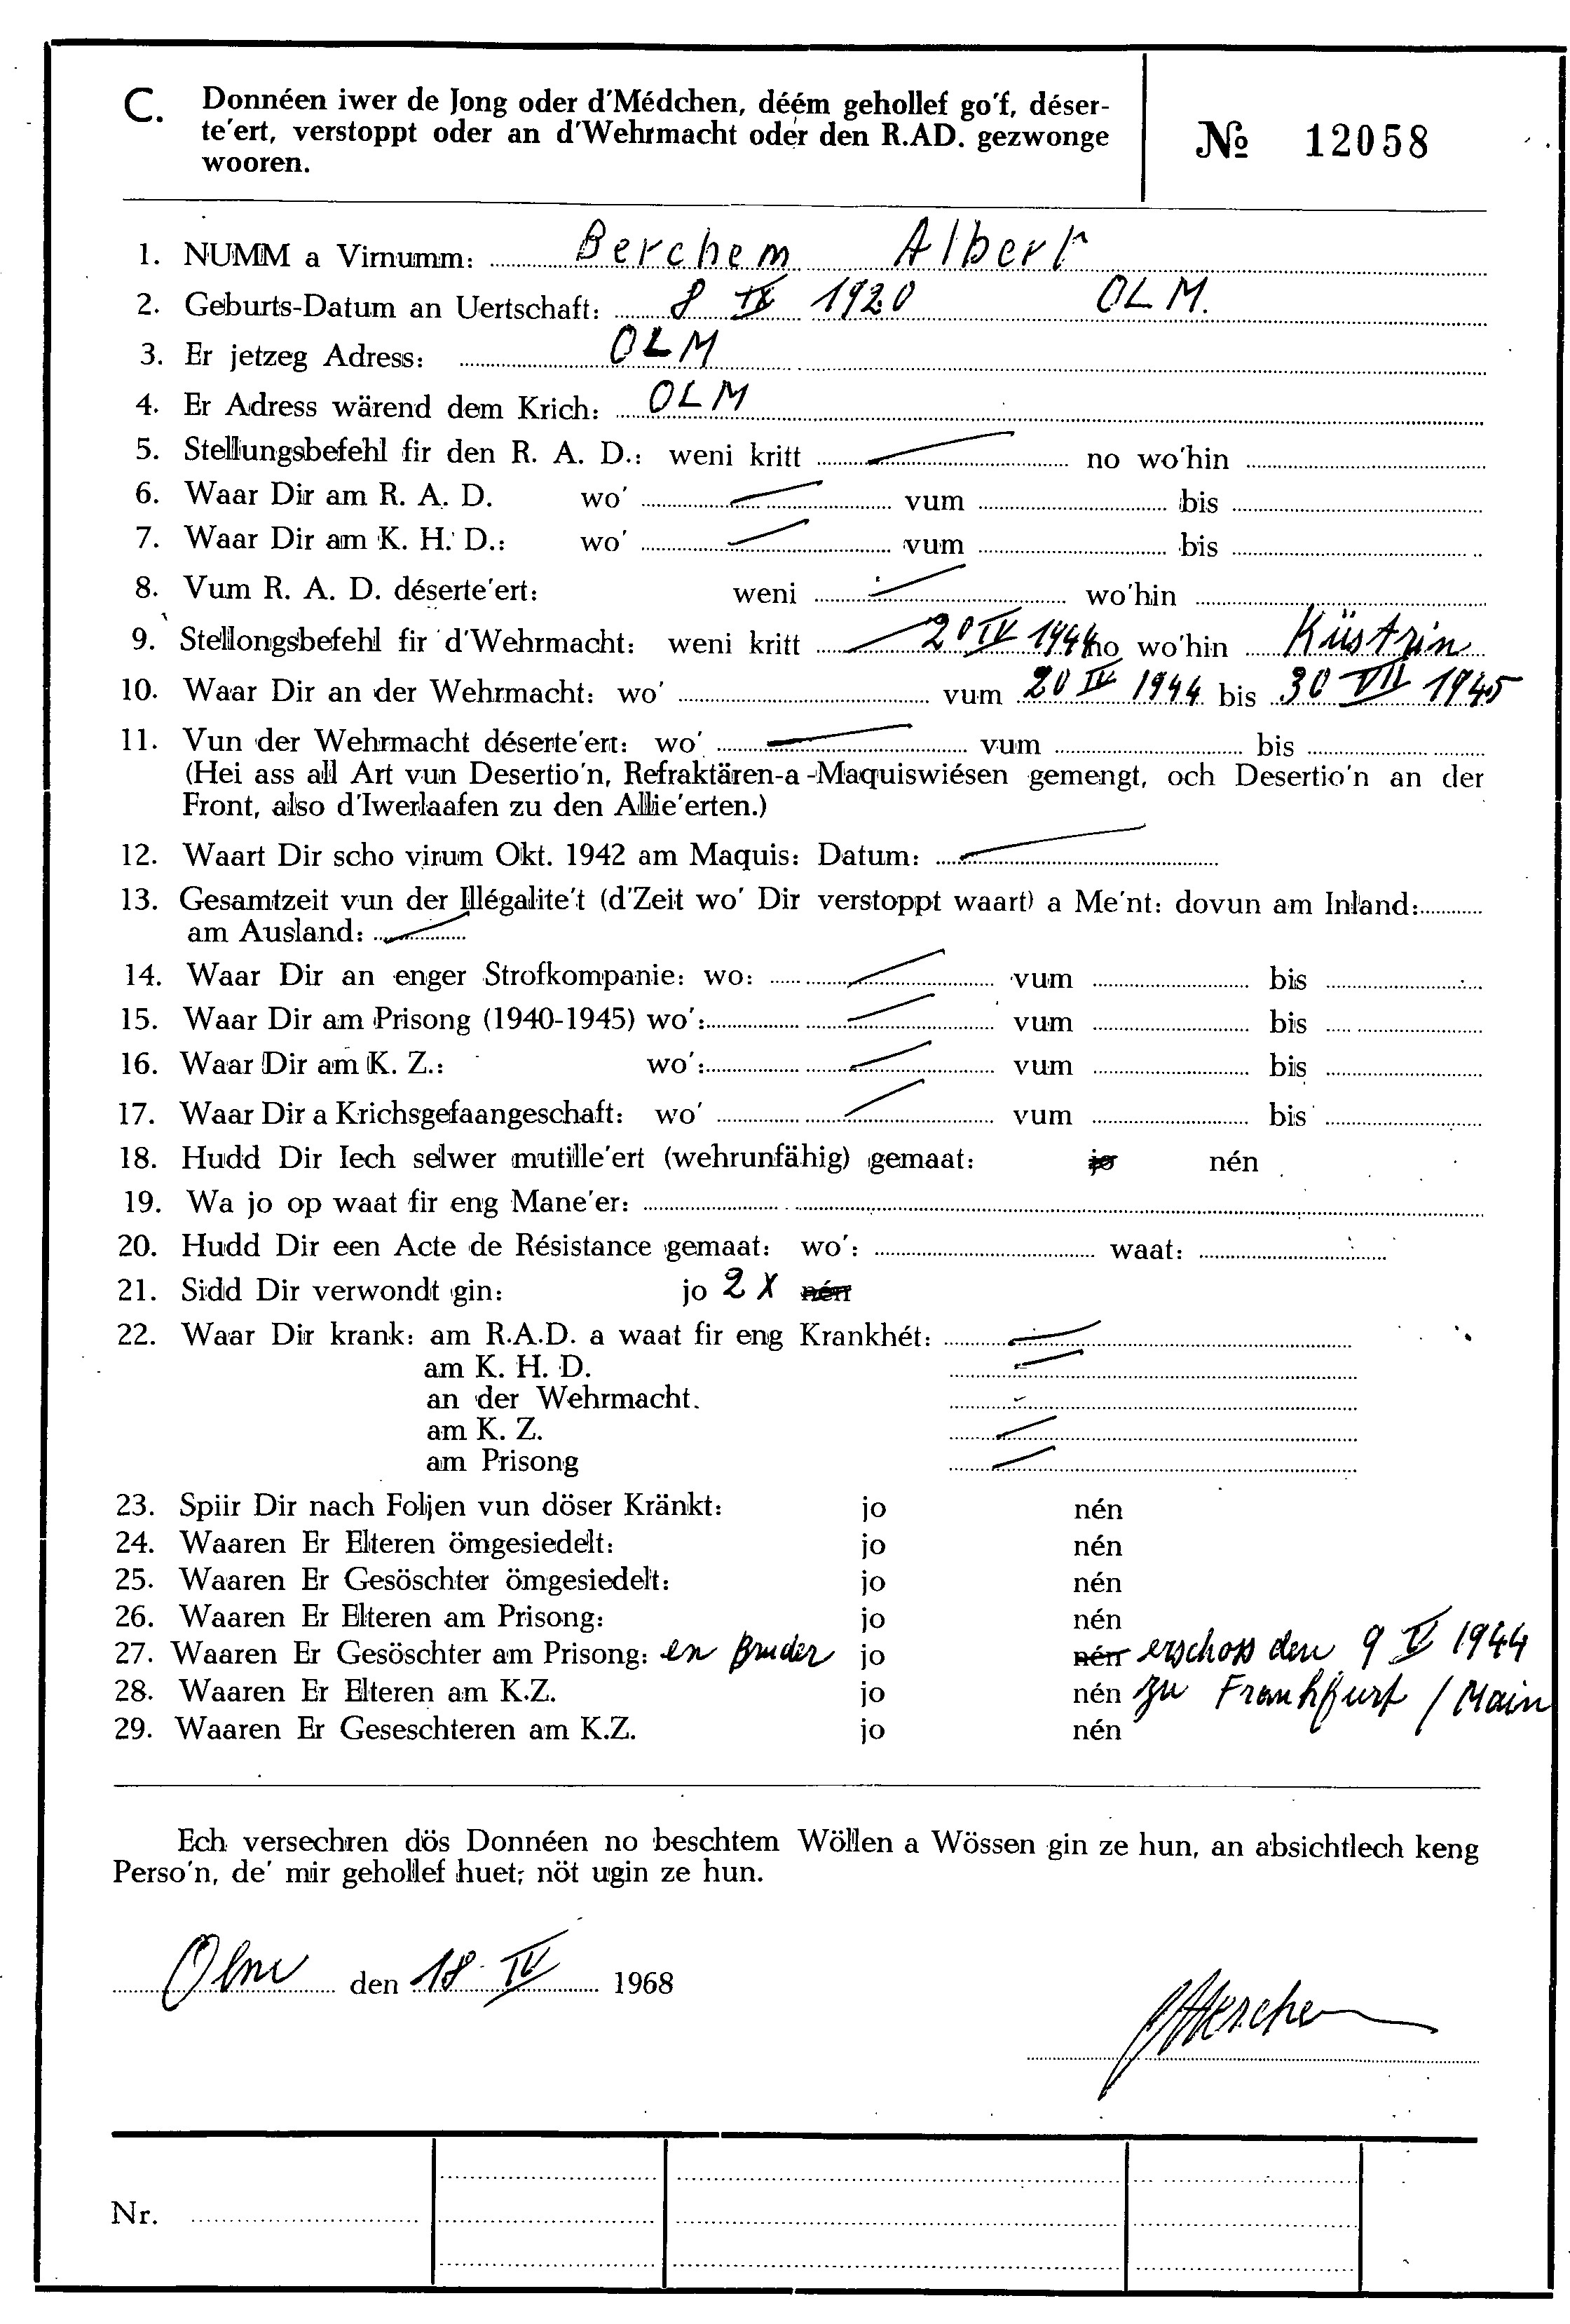 C. Donnéen iwer de Jong oder d'Médchen, déém gehollef go'f, déser-
te'ert, verstoppt oder an d'Wehrmacht oder den R.AD. gezwonge
wooren.
№ 12058
1. NUMM a Virnumm: Berchem Albert
2. Geburts-Datum an Uertschaft: 8 IX 1920 OLM.
3. Er jetzeg Adress: OLM
4. Er Adress wärend dem Krich: OLM
5. Stellungsbefehl fir den R. A. D.: weni kritt no wo'hin
6. Waar Dir am R. A. D. wo' vum bis
7. Waar Dir am K. H. D.: wo' vum bis
8. Vum R. A. D. déserte'ert: weni wo'hin
9. Stellongsbefehl fir d'Wehrmacht: weni kritt 20 IV 1944 no wo'hin Küstrin
10. Waar Dir an der Wehrmacht: wo' vum 20 IV 1944 bis 30 VII 1945
11. Vun der Wehrmacht déserte'ert: wo' vum bis
(Hei ass all Art vun Desertio'n, Refraktären-a-Maquiswiésen gemengt, och Desertio'n an der
Front, also d'Iwerlaafen zu den Allie'erten.)
12. Waart Dir scho virum Okt. 1942 am Maquis: Datum:
13. Gesamtzeit vun der Illégalite't (d'Zeit wo' Dir verstoppt waart) a Me'nt: dovun am Inland:
am Ausland:
14. Waar Dir an enger Strofkompanie: wo: vum bis
15. Waar Dir am Prisong (1940-1945) wo': vum bis
16. Waar Dir am K. Z.: wo': vum bis
17. Waar Dir a Krichsgefaangeschaft: wo' vum bis
18. Hudd Dir Iech selwer mutille'ert (wehrunfähig) gemaat: jo nén
19. Wa jo op waat fir eng Mane'er:
20. Hudd Dir een Acte de Résistance gemaat: wo': waat:
21. Sidd Dir verwondt gin: jo 2 X nén
22. Waar Dir krank: am R.A.D. a waat fir eng Krankhét:
am K. H. D.
an der Wehrmacht.
am K. Z.
am Prisong
23. Spiir Dir nach Foljen vun döser Kränkt: jo nén
24. Waaren Er Elteren ömgesiedelt: jo nén
25. Waaren Er Gesöschter ömgesiedelt: jo nén
26. Waaren Er Elteren am Prisong: jo nén
27. Waaren Er Gesöschter am Prisong: en Bruder jo nén erschoss den 9 V 1944
28. Waaren Er Elteren am K.Z. jo nén zu Frankfurt / Main
29. Waaren Er Geseschteren am K.Z. jo nén
Ech versechren dös Donnéen no beschtem Wöllen a Wössen gin ze hun, an absichtlech keng
Perso'n, de' mir gehollef huet, nöt ugin ze hun.
Olm den 18 IV 1968
Berchem
Nr.